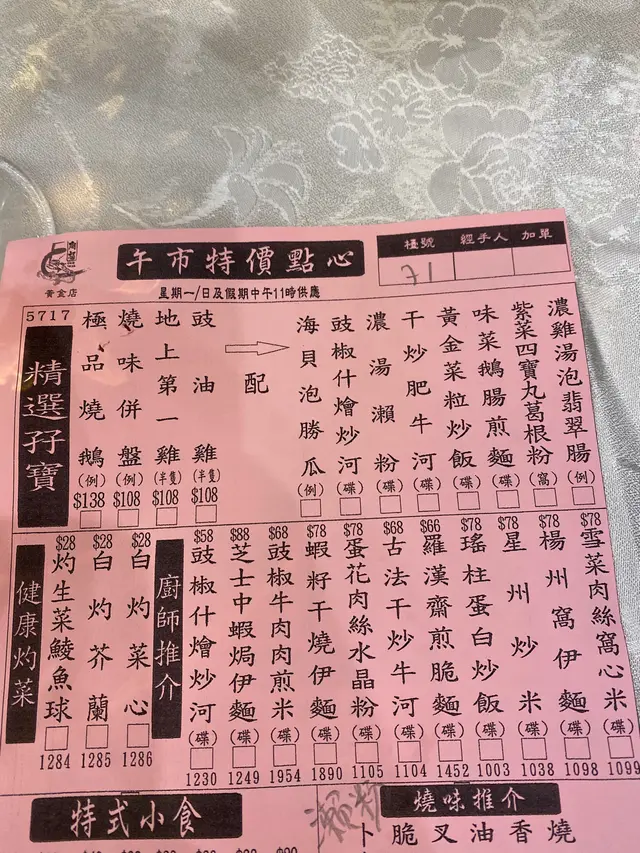 午市特價點心
星期一/日及假期中午11時供應
黃金店
檯號 經手人 加單
5717
精選孖寶
極品燒鵝 (例) $138
燒味併盤 (例) $108
地上第一雞 (半隻) $108
豉油雞 (半隻) $108
配
海貝泡勝瓜 (例)
豉椒什燴炒河 (碟)
濃湯瀨粉 (碟)
干炒肥牛河 (碟)
黃金菜粒炒飯 (碟)
味菜鵝腸煎麵 (碟)
紫菜四寶丸葛根粉 (窩)
濃雞湯泡翡翠腸 (例)
健康灼菜
$28 灼生菜鯪魚球 1284
$28 白灼芥蘭 1285
$28 白灼菜心 1286
廚師推介
$58 豉椒什燴炒河 (碟) 1230
$88 芝士中蝦焗伊麵 (碟) 1249
$68 豉椒牛肉肉煎米 (碟) 1954
$78 蝦籽干燒伊麵 (碟) 1890
$78 蛋花肉絲水晶粉 (碟) 1105
$68 古法干炒牛河 (碟) 1104
$66 羅漢齋煎脆麵 (碟) 1452
$78 瑤柱蛋白炒飯 (碟) 1003
$78 星州炒米 (碟) 1038
$78 楊州窩伊麵 (碟) 1098
$78 雪菜肉絲窩心米 (碟) 1099
特式小食
瀨粉
燒味推介
脆 叉 油 香 燒